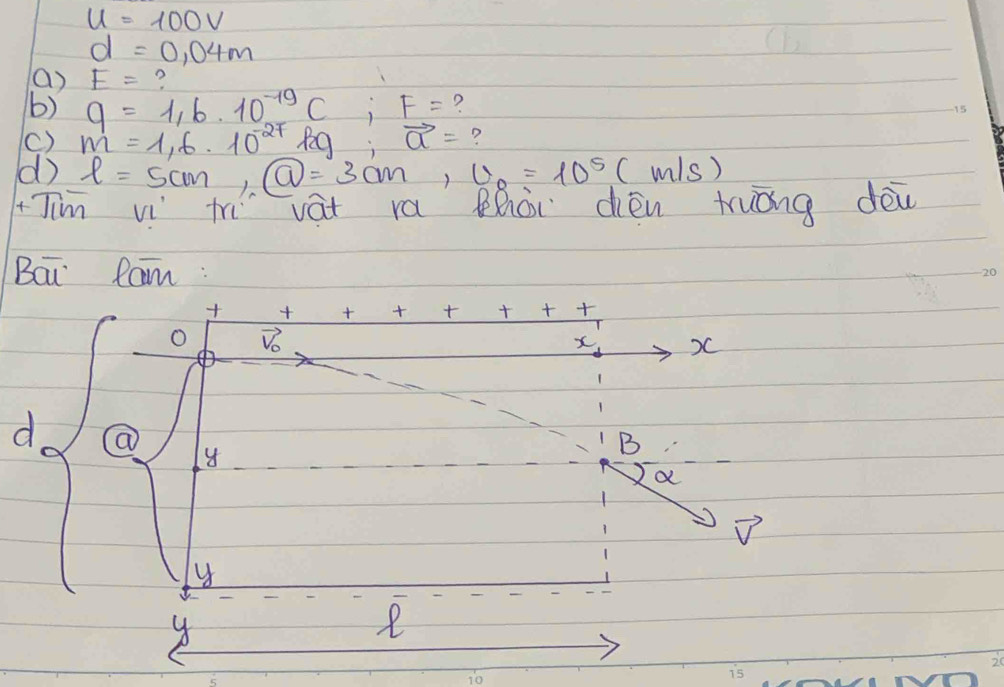 U = 100V
d = 0,04m
a) E = ?
b) q = 1,6 . 10⁻¹⁹ C ; F = ?
c) m = 1,6 . 10⁻²⁷ kg ; a⃗ = ?
d) l = 5cm , ⓐ = 3cm , v₀ = 10⁵ ( m/s)
+ Tìm vị trí vật ra khỏi điện trường đều
15
Bài làm :
20
+ + + + + + + +
O v⃗₀ x x
d ⓐ y B α
v⃗
y
- - - - - - - -
y l
5 10 15 20
KOKUYO